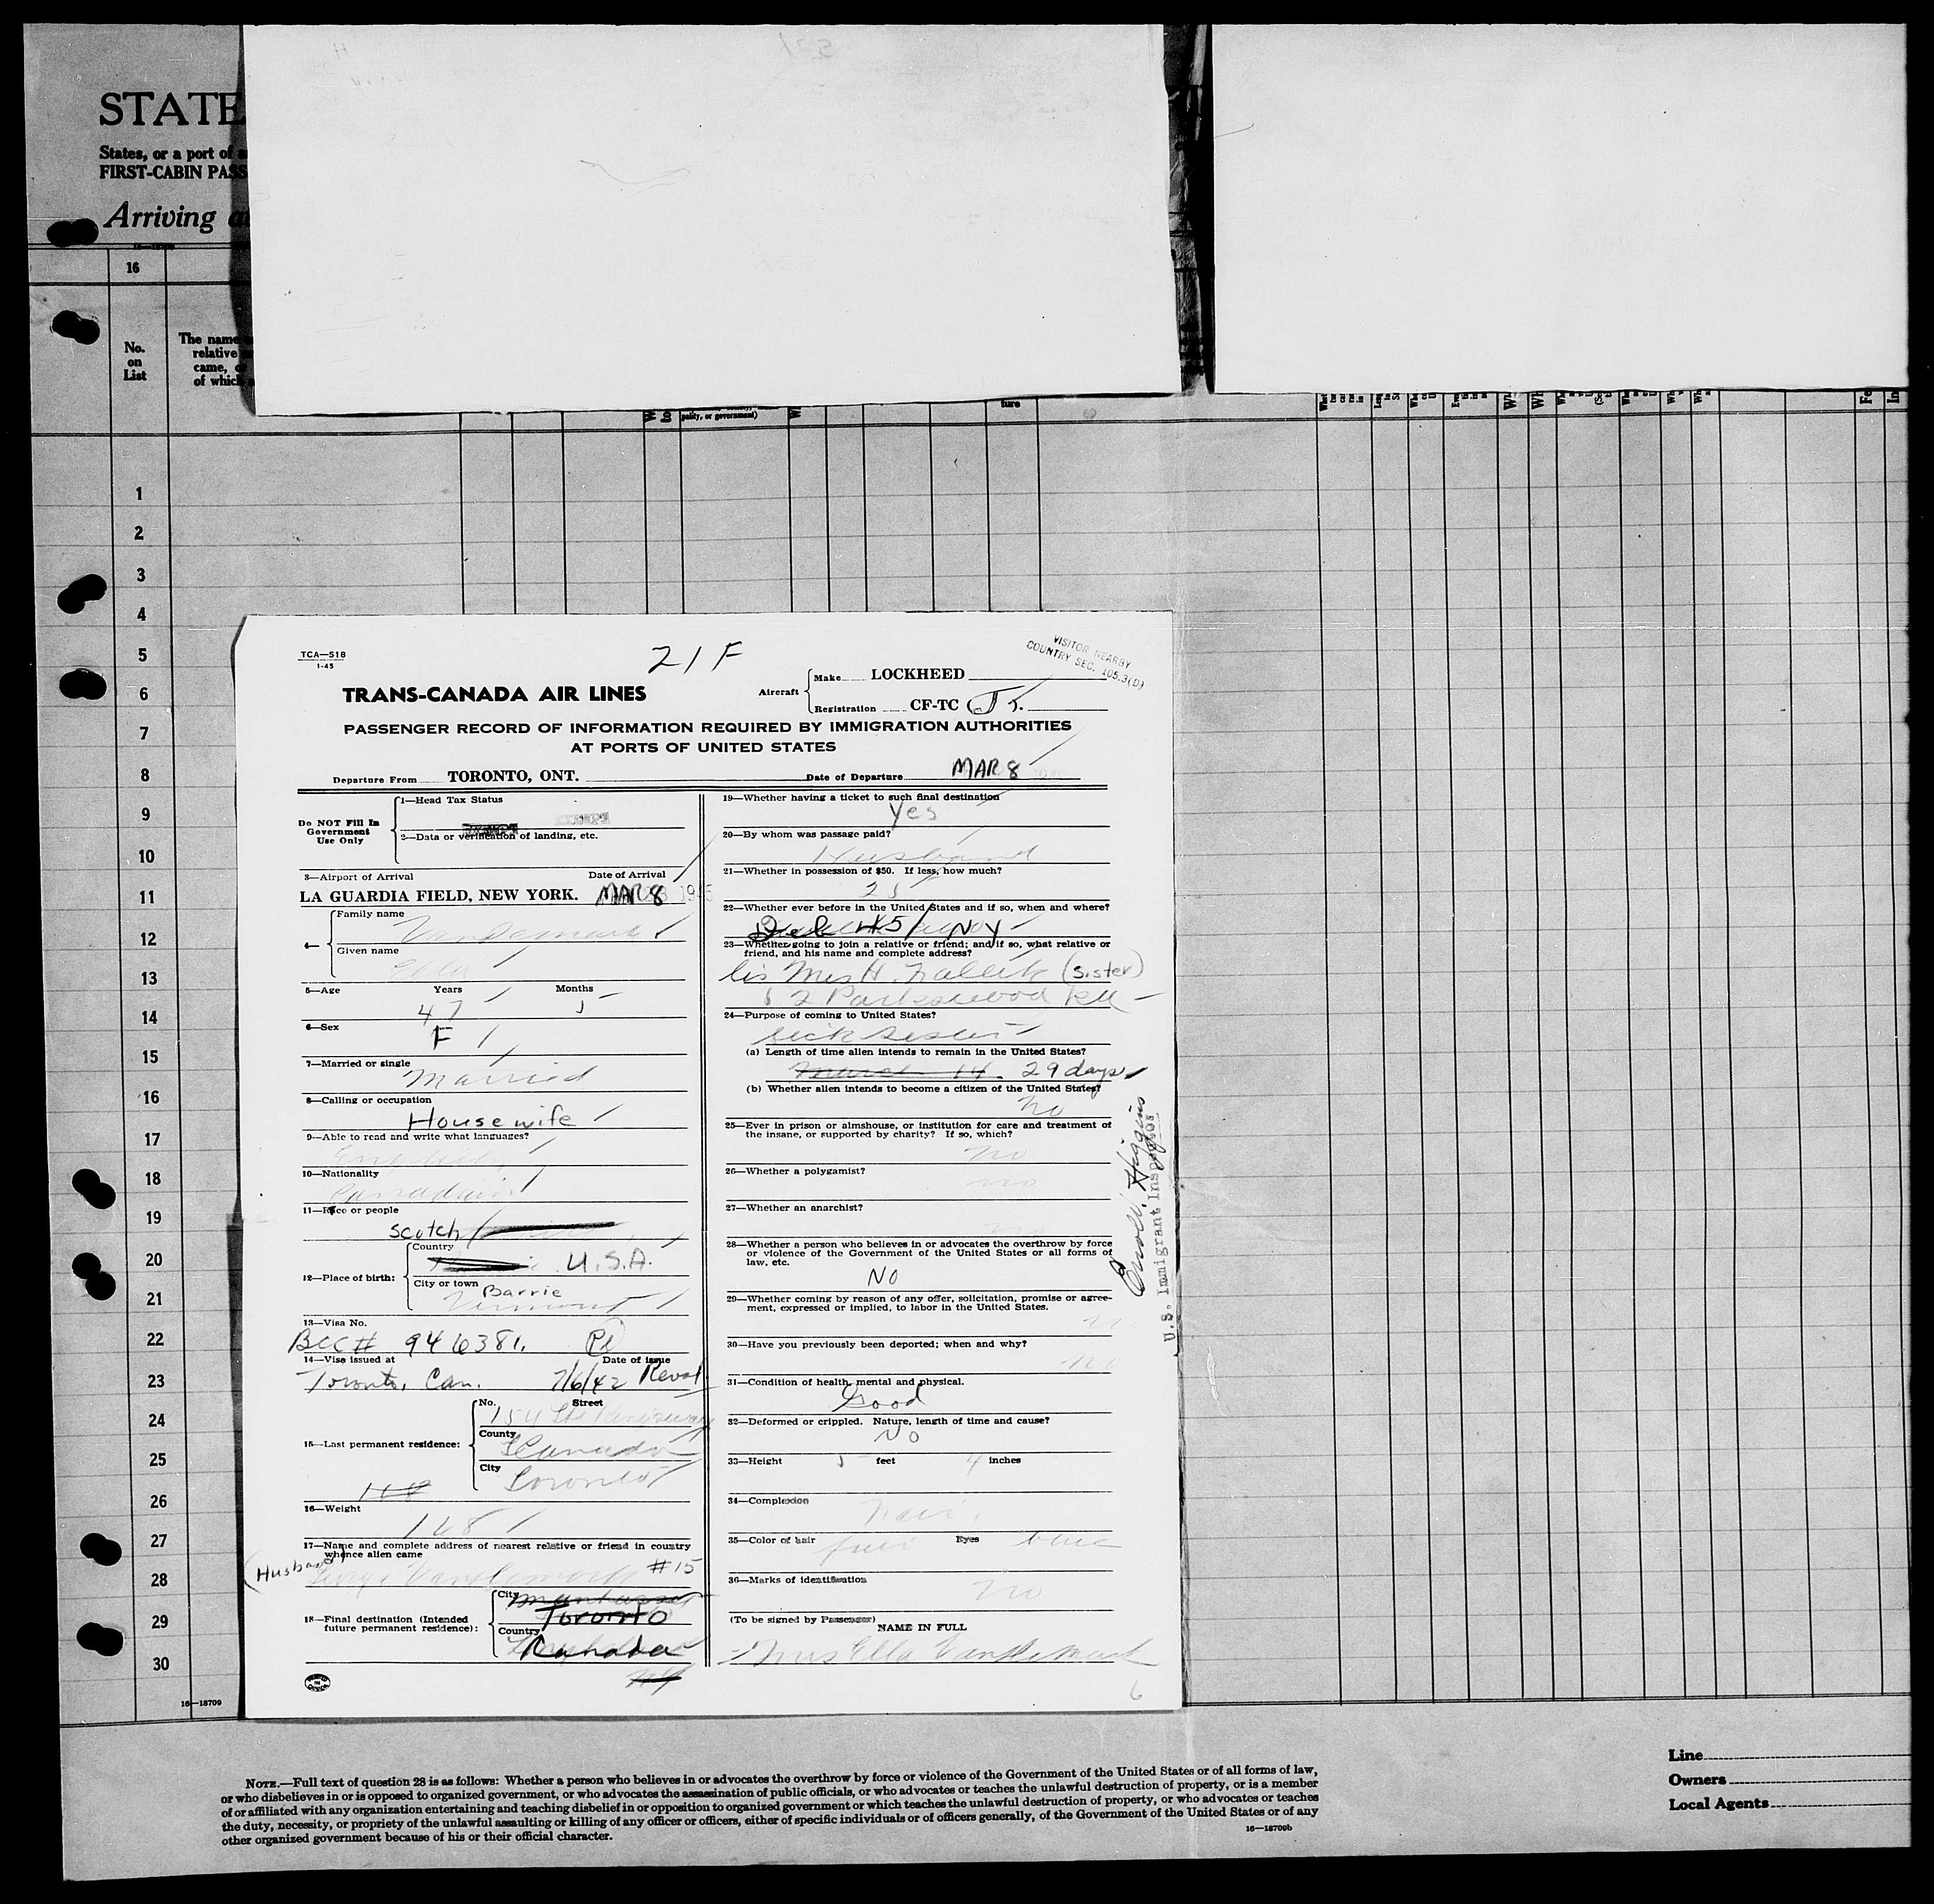 STATE
States, or a port of
FIRST-CABIN PASS
Arriving
16
No. on List
The name
relative
came,
of which
pality, or government)
ture
1
2
3
4
5
6
7
8
9
10
11
12
13
14
15
16
17
18
19
20
21
22
23
24
25
26
27
28
29
30
16—18709
TCA—518
1-45
21F
VISITOR NEARBY
COUNTRY SEC. 105.3(D)
TRANS-CANADA AIR LINES
Aircraft
Make LOCKHEED
Registration CF-TC
PASSENGER RECORD OF INFORMATION REQUIRED BY IMMIGRATION AUTHORITIES
AT PORTS OF UNITED STATES
Departure From TORONTO, ONT. Date of Departure MAR 8
Do NOT Fill In
Government
Use Only
1—Head Tax Status
2—Data or verification of landing, etc.
3—Airport of Arrival Date of Arrival
LA GUARDIA FIELD, NEW YORK. MAR 8
4—
Family name
Given name
Ella
5—Age Years Months
47 5
6—Sex
F
7—Married or single
Married
8—Calling or occupation
Housewife
9—Able to read and write what languages?
10—Nationality
Canadian
11—Race or people
Scotch
12—Place of birth:
Country
U.S.A.
City or town
Barrie
Vermont
13—Visa No.
BCC# 946381.
14—Visa issued at Date of issue
Toronto, Can. 7/6/42 Reval
15—Last permanent residence:
No. Street
154
County
Canada
City
Toronto
16—Weight
168
17—Name and complete address of nearest relative or friend in country
whence alien came
(Husband) #15
18—Final destination (Intended
future permanent residence):
City
Toronto
Country
Canada
19—Whether having a ticket to such final destination
Yes
20—By whom was passage paid?
Husband
21—Whether in possession of $50. If less, how much?
25
22—Whether ever before in the United States and if so, when and where?
45 NY
23—Whether going to join a relative or friend; and if so, what relative or
friend, and his name and complete address?
Mrs H. (sister)
24—Purpose of coming to United States?
sick sister
(a) Length of time alien intends to remain in the United States?
March 14. 29 days
(b) Whether alien intends to become a citizen of the United States?
No
25—Ever in prison or almshouse, or institution for care and treatment of
the insane, or supported by charity? If so, which?
no
26—Whether a polygamist?
no
27—Whether an anarchist?
no
28—Whether a person who believes in or advocates the overthrow by force
or violence of the Government of the United States or all forms of
law, etc.
No
29—Whether coming by reason of any offer, solicitation, promise or agree-
ment, expressed or implied, to labor in the United States.
no
30—Have you previously been deported; when and why?
no
31—Condition of health, mental and physical.
Good
32—Deformed or crippled. Nature, length of time and cause?
No
33—Height 5 feet 4 inches
34—Complexion
35—Color of hair Eyes blue
36—Marks of identification
No
(To be signed by Passenger)
NAME IN FULL
Mrs Ella
6
Higgins
U.S. Immigrant Inspector
NOTE.—Full text of question 28 is as follows: Whether a person who believes in or advocates the overthrow by force or violence of the Government of the United States or of all forms of law,
or who disbelieves in or is opposed to organized government, or who advocates the assassination of public officials, or who advocates or teaches the unlawful destruction of property, or is a member
of or affiliated with any organization entertaining and teaching disbelief in or opposition to organized government or which teaches the unlawful destruction of property, or who advocates or teaches
the duty, necessity, or propriety of the unlawful assaulting or killing of any officer or officers, either of specific individuals or of officers generally, of the Government of the United States or of any
other organized government because of his or their official character.
16—18709b
Line
Owners
Local Agents